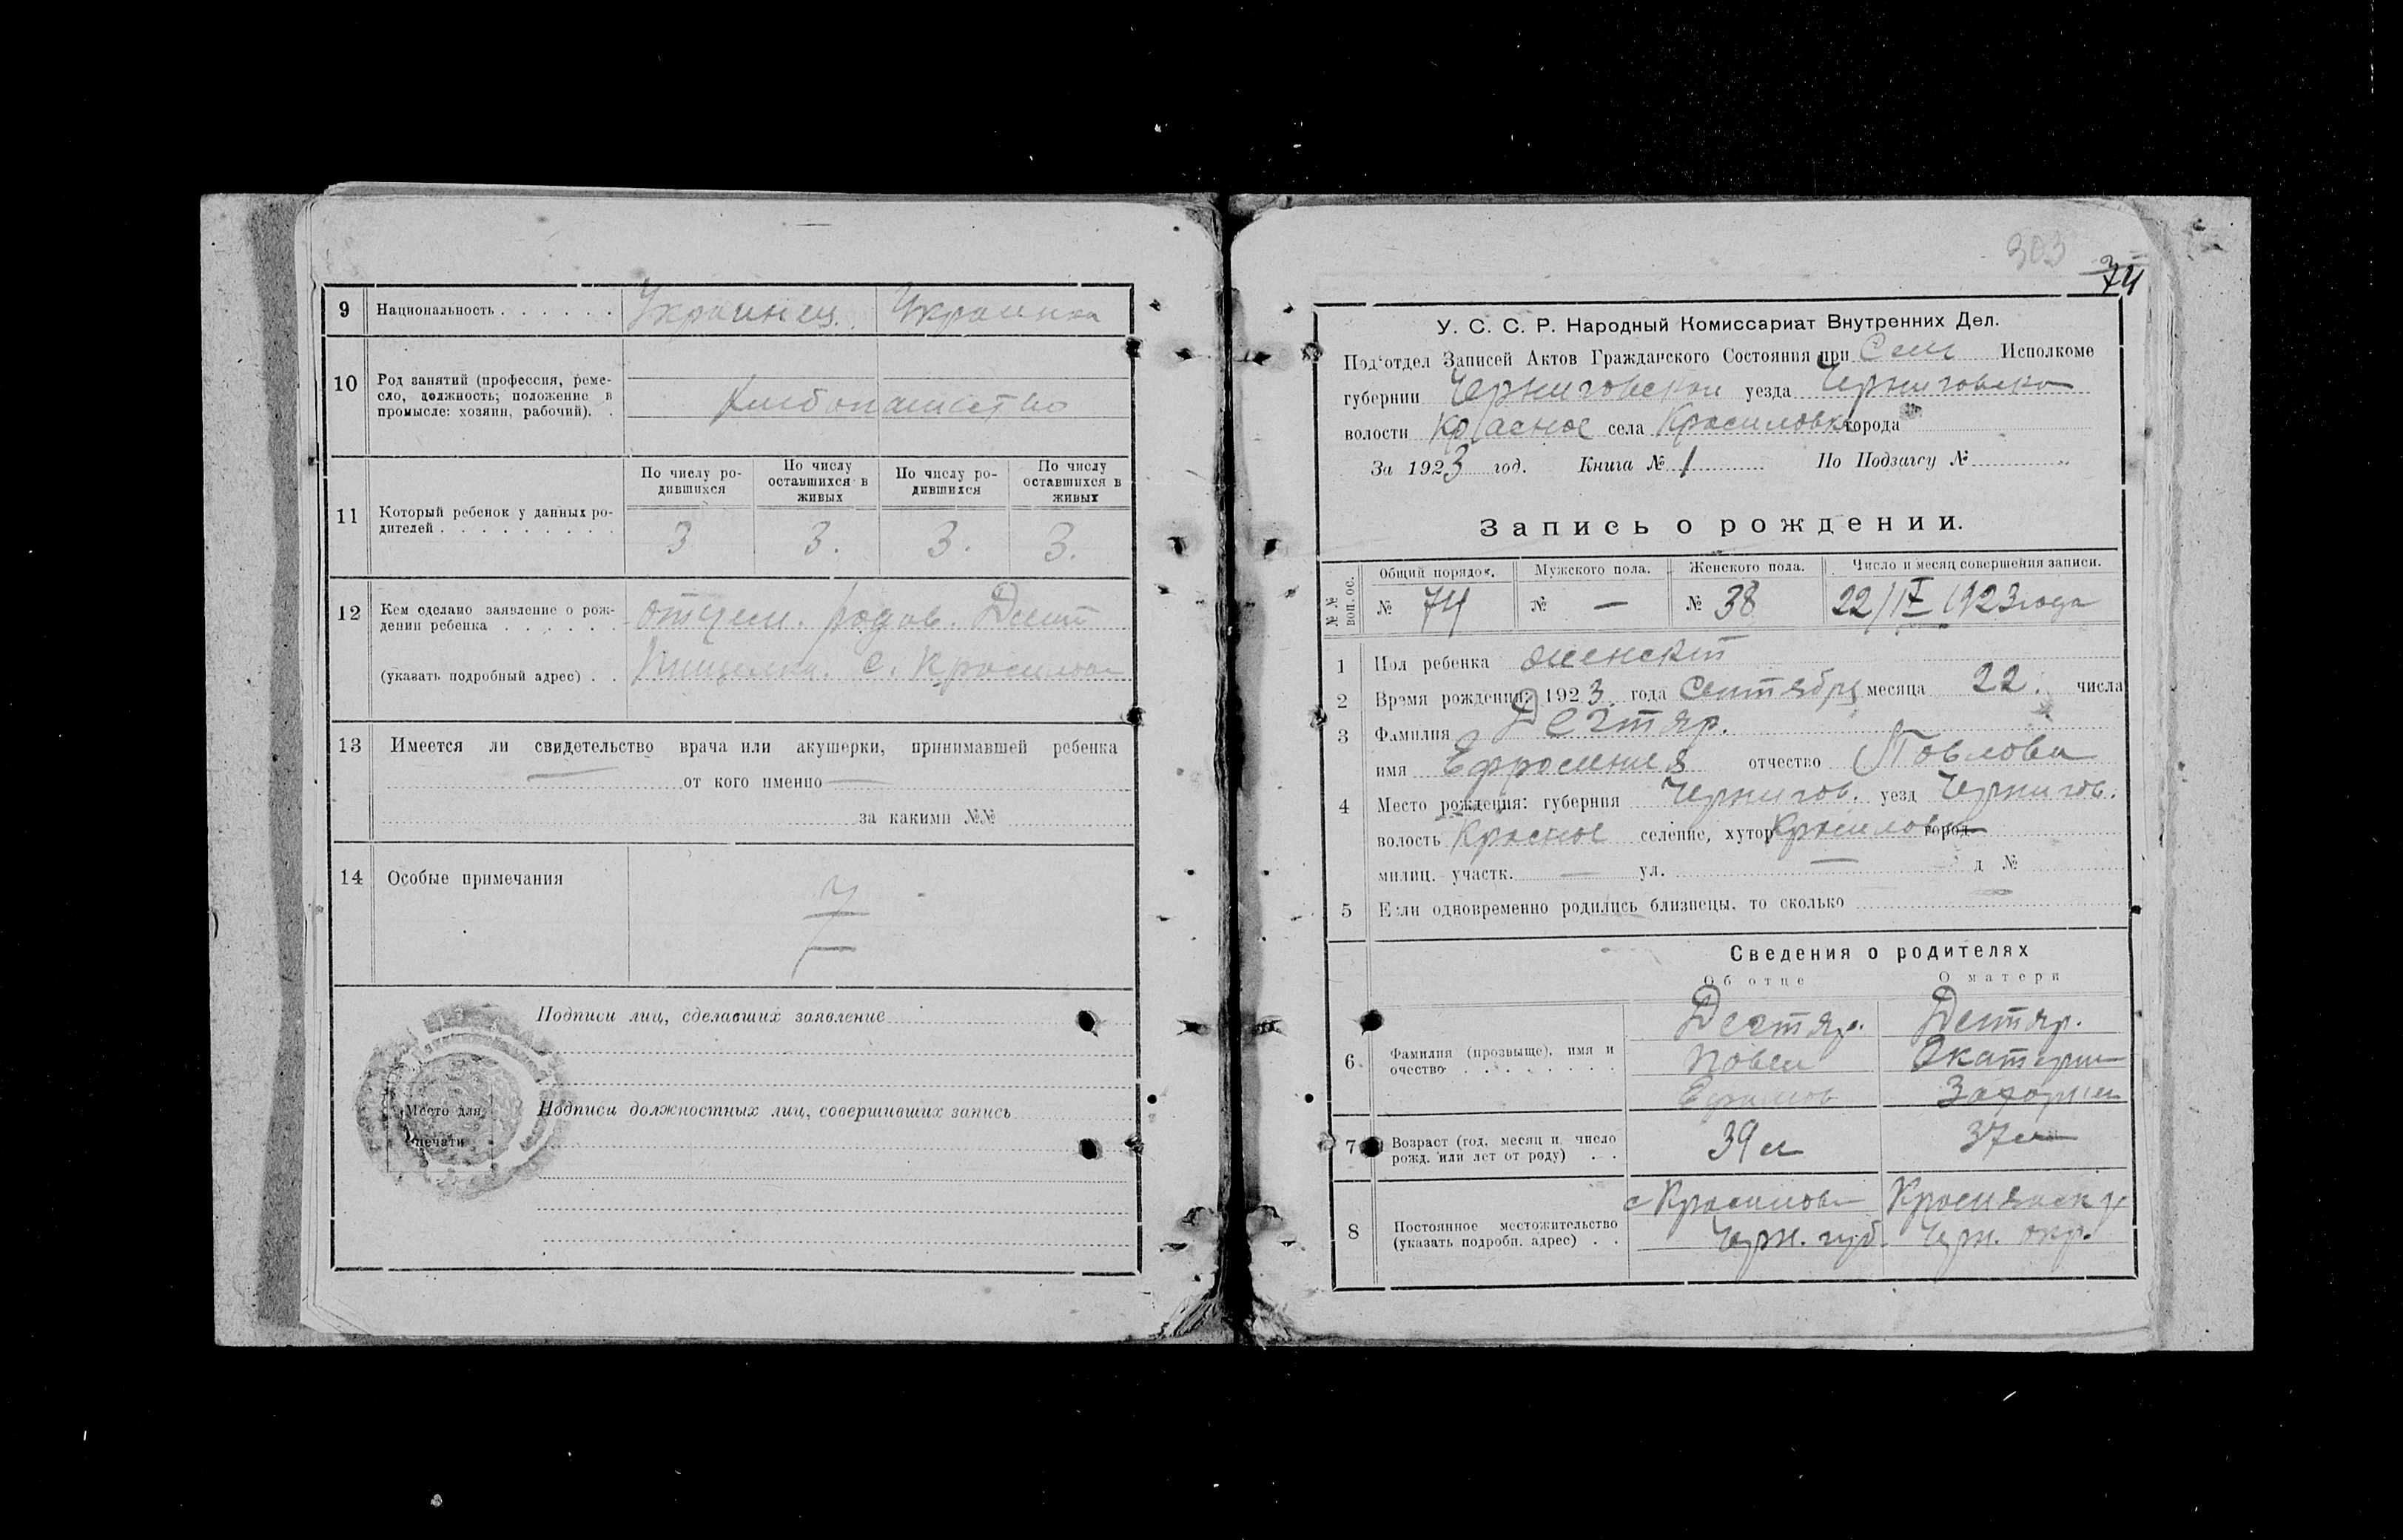 9 Национальность . . . . . . Украинец. Украинка
10 Род занятий (профессия, реме-
сло, должность; положение в
промысле: хозяин, рабочий). .
Хлебопашество
По числу ро-
дившихся
По числу
оставшихся в
живых
По числу ро-
дившихся
По числу
оставшихся в
живых
11 Который ребенок у данных ро-
дителей . . . . . . . . .
3 3. 3. 3.
12 Кем сделано заявление о рож-
дении ребенка . . . . . . отцем.
(указать подробный адрес) . . с.
13 Имеется ли свидетельство врача или акушерки, принимавшей ребенка
от кого именно —
за какими №№
14 Особые примечания
Подписи лиц, сделавших заявление
Место для
печати
Подписи должностных лиц, совершивших запись
303
74
У. С. С. Р. Народный Комиссариат Внутренних Дел.
Под'отдел Записей Актов Гражданского Состояния при Сел Исполкоме
губернии Черниговской уезда Черниговско
волости Красное села Красиловка города
За 1923 год. Книга № 1 По Подзагсу №
Запись о рождении.
№ №
воп. ос.
Общий порядок. Мужского пола. Женского пола. Число и месяц совершения записи.
№ 74 № — № 38 22/IX 1923 года
1 Пол ребенка женскит
2 Время рождения: 1923 года Сентября месяца 22. числа
3 Фамилия Дегтяр.
имя Ефросиния отчество Павлова
4 Место рождения: губерния Чернигов. уезд Чернигов.
волость Красное селение, хутор Красиловк город
милиц. участк. — ул. — д №
5 Если одновременно родились близнецы, то сколько —
Сведения о родителях
Об отце О матери
6. Фамилия (прозвище), имя и
очество . . . . . . . .
Дегтяр. Дегтяр.
Павел Екатерин
7 Возраст (год, месяц и число
рожд. или лет от роду) . .
39 л 37 л
8 Постоянное местожительство
(указать подробн. адрес) . .
с Красиловк
Черн. губ. Черн. окр.